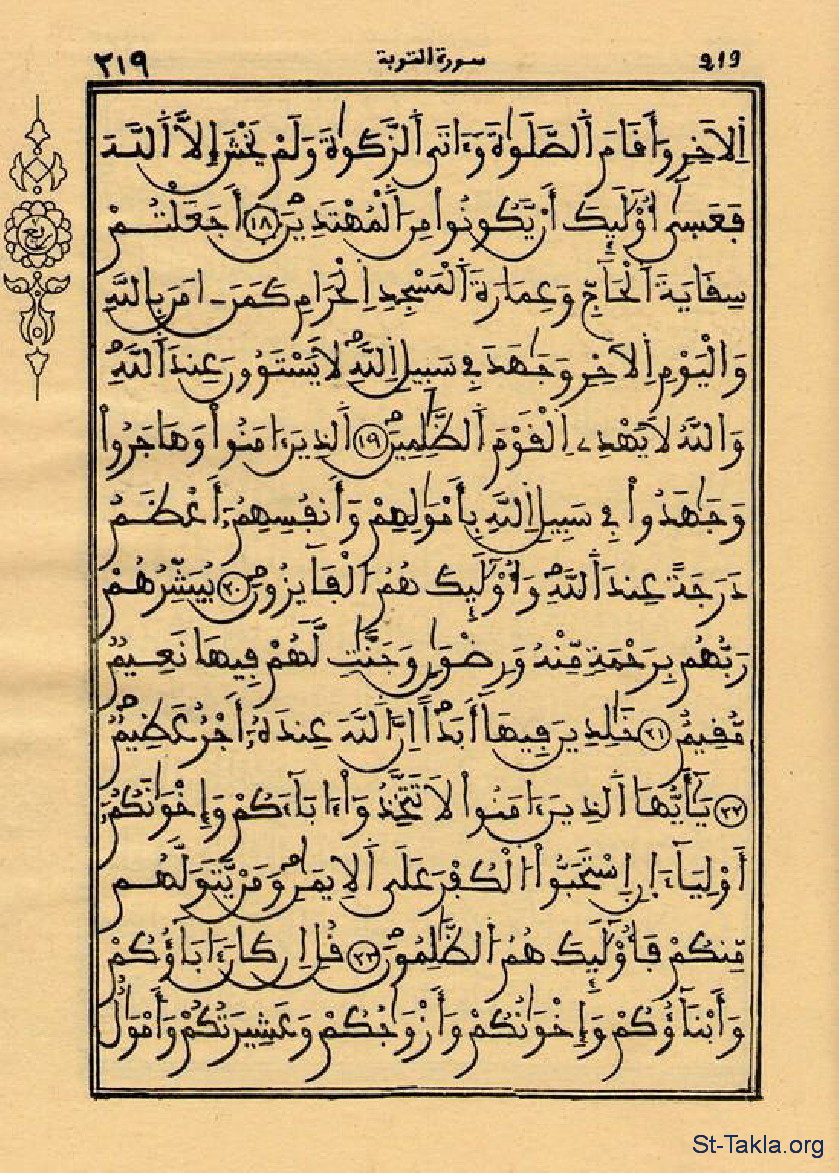 219 سورة التوبة ٢١٩
اِ۬لَاخِرِ وَأَقَامَ اَ۬لصَّلَوٰةَ وَءَاتَي اَ۬لزَّكَوٰةَ وَلَمْ يَخْشَ إِلَّا اَ۬للَّهَ
فَعَسٰٓى أُوْلَٰٓئِكَ أَنْ يَّكُونُواْ مِنَ اَ۬لْمُهْتَدِينَ ١٨ أَجَعَلْتُمْ
سِقَايَةَ اَ۬لْحَآجِّ وَعِمَارَةَ اَ۬لْمَسْجِدِ اِ۬لْحَرَامِ كَمَنَ اٰمَنَ بِاللَّهِ
وَالْيَوْمِ اِ۬لَاخِرِ وَجَٰهَدَ فِي سَبِيلِ اِ۬للَّهِ لَا يَسْتَوُۥنَ عِندَ اَ۬للَّهِ
وَاللَّهُ لَا يَهْدِے اِ۬لْقَوْمَ اَ۬لظَّٰلِمِينَ ١٩ اَ۬لذِينَ ءَامَنُواْ وَهَاجَرُواْ
وَجَٰهَدُواْ فِي سَبِيلِ اِ۬للَّهِ بِأَمْوَٰلِهِمْ وَأَنفُسِهِمُۥٓ أَعْظَمُ
دَرَجَةً عِندَ اَ۬للَّهِ وَأُوْلَٰٓئِكَ هُمُ اَ۬لْفَآئِزُونَ ٢٠ يُبَشِّرُهُمْ
رَبُّهُم بِرَحْمَةٖ مِّنْهُ وَرِضْوَٰنٖ وَجَنَّٰتٖ لَّهُمْ فِيهَا نَعِيمٞ
مُّقِيمٌ ٢١ خَٰلِدِينَ فِيهَآ أَبَداً إِنَّ اَ۬للَّهَ عِندَهُۥٓ أَجْرٌ عَظِيمٞ
٢٢ يَٰٓأَيُّهَا اَ۬لذِينَ ءَامَنُواْ لَا تَتَّخِذُوٓاْ ءَابَآءَكُمْ وَإِخْوَٰنَكُمُۥٓ
أَوْلِيَآءَ اِ۪نِ اِ۪سْتَحَبُّواْ اُ۬لْكُفْرَ عَلَى اَ۬لِايمَٰنِ وَمَنْ يَّتَوَلَّهُم
مِّنكُمْ فَأُوْلَٰٓئِكَ هُمُ اُ۬لظَّٰلِمُونَ ٢٣ قُلِ اِن كَانَ ءَابَآؤُكُمْ
وَأَبْنَآؤُكُمْ وَإِخْوَٰنُكُمْ وَأَزْوَٰجُكُمْ وَعَشِيرَتُكُمْ وَأَمْوَٰلٌ
St-Takla.org